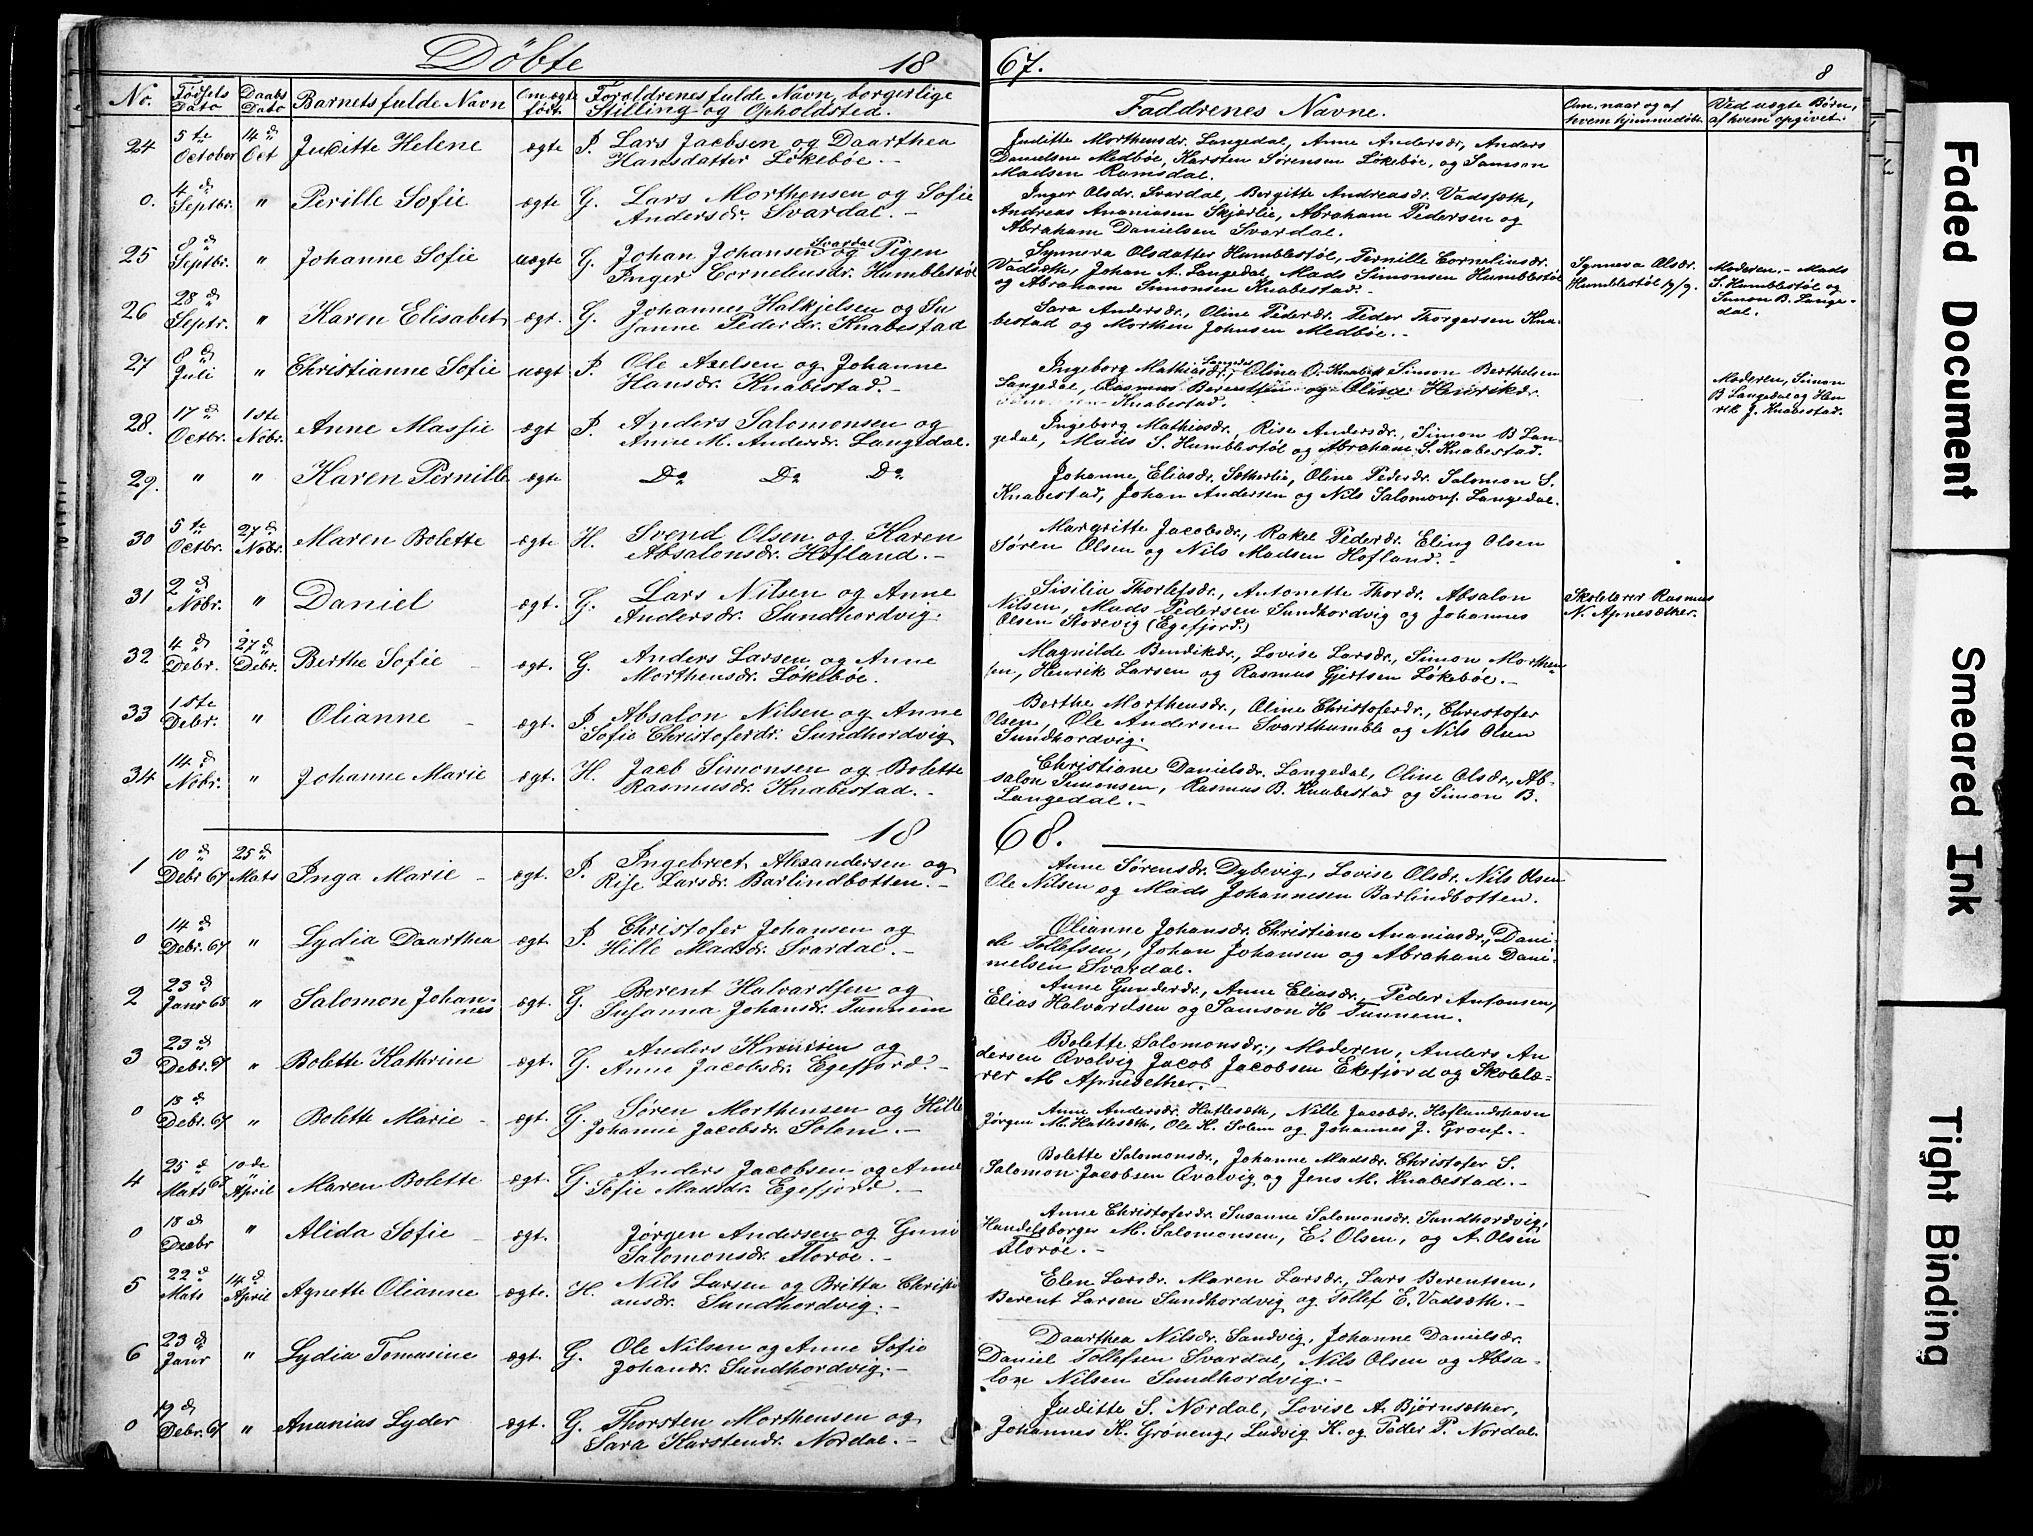 Døbte 18
67. 8
No. Fødsels Dato Daabs Dato Barnets fulde Navn Om ægte født. Forældrenes fulde Navn, borgerlige Stilling og Opholdsted.
Faddrenes Navne. Om, naar og af hvem hjemmedøbt. Ved uægte Børn, af hvem opgivet.
24 5te October 14d Oct Juditte Helene ægte P. Lars Jacbsen og Daarthea
Hansdatter Løkebøe.-
Juditte Morthensdr. Langedal, Anne Andersdr, Anders
Danielsen Medbøe, Karsten Sørensen Løkebøe, og Samson
Madsen Ramsdal.
0. 4d Septbr. " Perille Sofie ægte G. Lars Morthensen og Sofie
Andersdr. Svardal.-
Inger Olsdr. Svardal, Bergitte Andreasdr. Vadsøth,
Andreas Ananiasen Skjærlie, Abraham Pedersen og
Abraham Danielsen Svardal.
25 8d Septbr. " Johanne Sofie uægte G. Johan Johansen Svardal og Pigen
Inger Corneliusdr. Humblestøl
Synneva Olsdatter Humblestøl, Pernille Corneliusdr.
Vadsæth, Johan A. Langedal, Mads Simonsen Humblestøl
og Abraham Simonsen Knabestad.-
Synneva Olsdr. Humblestøl 19/9.
Moderen.- Mads
S. Humblestøl og
Simon B. Lange-
dal.
26 28d Septr. " Karen Elisabet ægt. G. Johannes Halkjelsen og Su
sanne Pedersdr. Knabestad
Sara Andersdr., Oline Pedersdr. Peder Thorgersen Kna-
bestad og Morthen Johnsen Medbøe.-
27 8d Juli " Christianne Sofie uægt P. Ole Axelsen og Johanne
Hansdr. Knabestad.-
Ingeborg Mathiasdr, Langedal Olina O. Knabest Simon Berthelsen
Langedal, Rasmus Berentsen og Oline Henrikdr.
Knabestad.
Moderen, Simon
B Langedal og Hen
rik J. Knabestad.
28. 17d Octbr. 1ste Nobr. Anne Massie ægt P. Anders Salomonsen og
Anne M. Andersdr. Langedal.
Ingeborg Mathiasdr., Rise Andersdr., Simon B Lan-
gedal, Mads S. Humblestøl og Abraham S. Knabestad.
29. " " Karen Pernille ægte Do Do Do
Johanne Eliasdr. Sætherlie, Oline Pedersdr. Salomon S.
Knabestad, Johan Andersen og Nils Salomons. Langedal.
30 5te Octbr. 27d Nobr. Maren Bolette ægte H. Svend Olsen og Karen
Absalonsdr. Hofland.-
Margritte Jacobsdr., Rakel Pedersdr. Eling Olsen
Søren Olsen og Nils Madsen Hofland.-
31 2d Nobr. " Daniel ægt. G. Lars Nilsen og Anne
Andersdr. Sundhordvig.
Sisilia Thorlefsdr., Antonette Thordr. Absalon
Nilsen, Mads Pedersen Sundhordvig og Johannes
Olsen Storevig (Egefjord.)
Skolelærer Rasmus
N. Apnesæther.
32 4d Debr. 27d Debr. Berthe Sofie ægt. G. Anders Larsen og Anne
Morthensdr. Løkebøe.
Magnilde Bendikdr., Lovise Larsdr., Simon Morthen-
sen, Henrik Larsen og Rasmus Gjertsen Løkebøe.-
33 1ste Debr. " Olianne ægt. P. Absalon Nilsen og Anne
Sofie Christoferdr. Sundhordvig
Berthe Morthensdr., Oline Christoferdr., Christofer
Olsen, Ole Andersen Svarthumble og Nils Olsen
Sundhordvig.
34 14d Nobr. " Johanne Marie ægt. H. Jacb Simonsen og Bolette
Rasmusdr. Knabestad.-
Christiane Danielsdr. Langedal, Oline Olsdr., Ab-
salon Simonsen, Rasmus B. Knabestad og Simon B.
Langedal.-
18 68.
1 10d Debr 67 25d Mats Inga Marie ægt. P. Ingebrect Alexandersen og
Rise Larsdr. Barlindbotten.-
Anne Sørensdr. Dybevig, Lovise Olsdr. Nils Olsen
Ole Nilsen og Mads Johannesen Barlindbotten.
0 14d Debr. 67 " Lydia Daarthea ægt. P. Christofer Johansen og
Hille Madsdr. Svardal.-
Olianne Johansdr. Christiane Ananiasdr., Dani-
el Tollefsen, Johan Johansen og Abrahane Dani-
nielsen Svardal.
2 23d Janr 68 " Salomon Johan-
nes ægt. G. Berent Halvardsen og
Susanna Johansdr. Tunnem
Anne Gunderdr., Anne Eliasdr. Peder Antonsen,
Elias Halvardsen og Samson H Tunnem.-
3 23d Debr. 67 " Bolette Kathrine ægt. G. Anders Hansen og
Anne Jacobsdr. Egefjord.-
Bolette Salomonsdr., Moderen, Anders An
dersen Qvalvig Jacob Jacobsen Ekefjord og Skolelæ-
rer M Apnesæther.-
0 13d Debr. 67 " Bolette Marie ægt. G. Søren Morthensen og Hille
Johanne Jacobsdr. Solem.-
Anne Andersdr. Hatlesæth, Nille Jacobdr. Hoflandshavn
Jørgen M. Hatlesæth, Ole K. Solem og Johannes J. Grouf.-
4 25d Mats 68 10de April Maren Bolette ægt. G. Anders Jacobsen og Anne
Sofie Madsdr. Egefjord.-
Bolette Salomonsdr., Johanne Madsdr. Christofer S.
Salomon Jacobsen Qvalvig og Jens M. Knabestad.-
0 18d Decbr " Alida Sofie ægt. Jørgen Andersen og Guni
Salomonsdr. Florøe.-
Anne Christoferdr. Susanne Salomonsdr. Sundhordvig,
Handelsborger M. Salomonsen, E. Olsen, og A. Olsen
Florøe.-
5 22d Mats 14d April Agnette Olianne ægte. H. Nils Larsen og Britta Christi
ansdr. Sundhordvig.-
Elen Larsdr. Maren Larsdr., Lars Berentsen,
Berent Larsen Sundhordvig og Tollef E. Vadsæth.-
6 23d Janr " Lydia Tomasine ægt. G. Ole Nilsen og Anne Sofie
Johandr. Sundhordvig.-
Daarthea Nilsdr. Sandvig, Johanne Danielsdr.
Daniel Tollefsen Svardal, Nils Olsen og Absa-
lon Nilsen Sundhordvig.-
0 19d Debr. 67 " Ananias Lyder ægt. G. Thorsten Morthensen og
Sara Karstendr. Nordal.-
Juditte S. Nordal, Lovise A. Bjørnsæther,
Johannes K. Grøneng, Ludvig K. og Peder P. Nordal.
Faded Document
Smeared Ink
Tight Binding